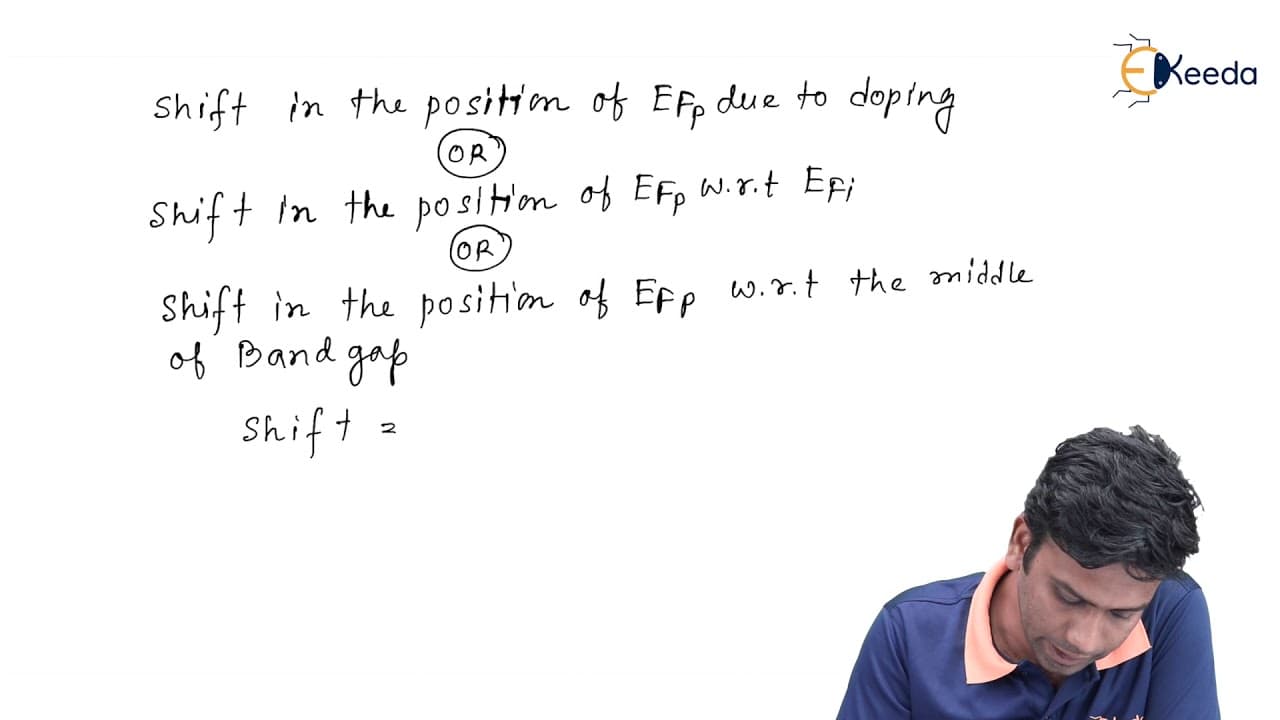 EKeeda
Shift in the position of EFp due to doping
OR
Shift in the position of EFp w.r.t EFi
OR
Shift in the position of EFp w.r.t the middle
of Band gap
Shift =